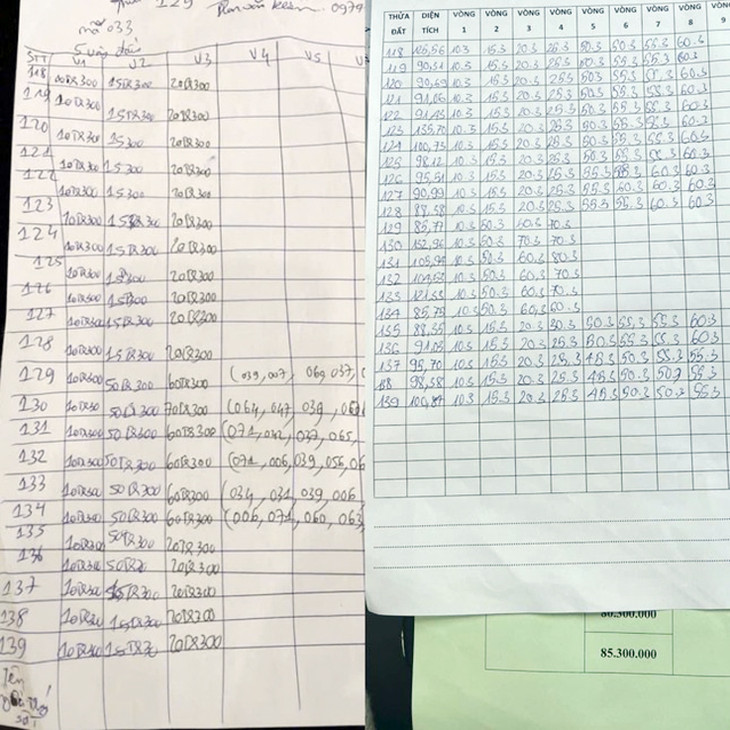 129 0979
mã 033
5 vòng đấu
STT V1 V2 V3 V4 V5
118 10TR300 15TR300 20TR300
119 10TR300 15TR300 20TR300
120 10TR300 15300 20TR300
121 10TR300 15300 20TR300
122 10TR300 15300 20TR300
123 10TR300 15TR300 20TR300
124 10TR300 15TR300 20TR300
125 10TR300 20TR300
126 10TR300 20TR300
127 10TR300 15TR300 20TR300
128 10TR300 15TR300 20TR300
129 10TR300 50TR300 60TR300 (039, 007, 069 037, 0
130 10TR30 50TR300 70TR300 (064, 047, 039,
131 10TR300 50TR300 60TR300 (071, 042, 037, 065,
132 10TR300 50TR300 60TR300 (071, 006, 039, 056, 06
133 10TR300 50TR300 60TR300 (034, 031, 039, 006
134 10TR300 50TR300 60TR300 (006, 071, 060, 063,
135 10TR300 50TR300 20TR300
136 10TR300 20TR300
137 20TR300
138 15TR300 20TR300
139 10TR300 15TR30 20TR300
Tên
THỬA ĐẤT DIỆN TÍCH VÒNG 1 VÒNG 2 VÒNG 3 VÒNG 4 VÒNG 5 VÒNG 6 VÒNG 7 VÒNG 8 VÒNG 9
118 10.3 15.3 20.3 25.3 50.3 50.3 55.3 60.3
119 90,31 10.3 15.3 20.3 25.3 50.3 55.3 55.3 60.3
120 10.3 15.3 20.3 25.3 50.3 55.3 60.3
121 91,06 10.3 15.3 20.3 25.3 50.3 55.3 55.3 60.3
122 10.3 15.3 20.3 25.3 50.3 55.3 55.3 60.3
123 135,70 10.3 15.3 20.3 25.3 50.3 55.3 60.3
124 100,75 10.3 15.3 20.3 25.3 50.3 55.3 55.3 60.3
125 98,12 10.3 15.3 20.3 25.3 50.3 55.3 55.3 60.3
126 95,51 10.3 15.3 20.3 25.3 55.3 55.3 60.3 60.3
127 90,99 10.3 15.3 20.3 25.3 55.3 60.3 60.3 60.3
128 88,38 10.3 15.3 20.3 25.3 55.3 55.3 60.3 60.3
129 85,77 10.3 50.3 60.3 70.3
130 152,96 10.3 50.3 70.3 70.3
131 10.3 50.3 60.3 80.3
132 10.3 50.3 60.3 70.3
133 10.3 50.3 60.3 70.3
134 85,75 10.3 50.3 60.3 60.3
135 88,35 10.3 15.3 20.3 50.3 55.3 55.3 60.3
136 91,03 10.3 15.3 20.3 25.3 50.3 55.3 55.3 60.3
137 95,70 10.3 15.3 20.3 25.3 45.3 50.3 55.3 55.3
98,38 10.3 15.3 20.3 25.3 45.3 50.3 55.3
139 100,87 10.3 15.3 20.3 25.3 45.3 50.3 50.3 55.3
80.300.000
85.300.000